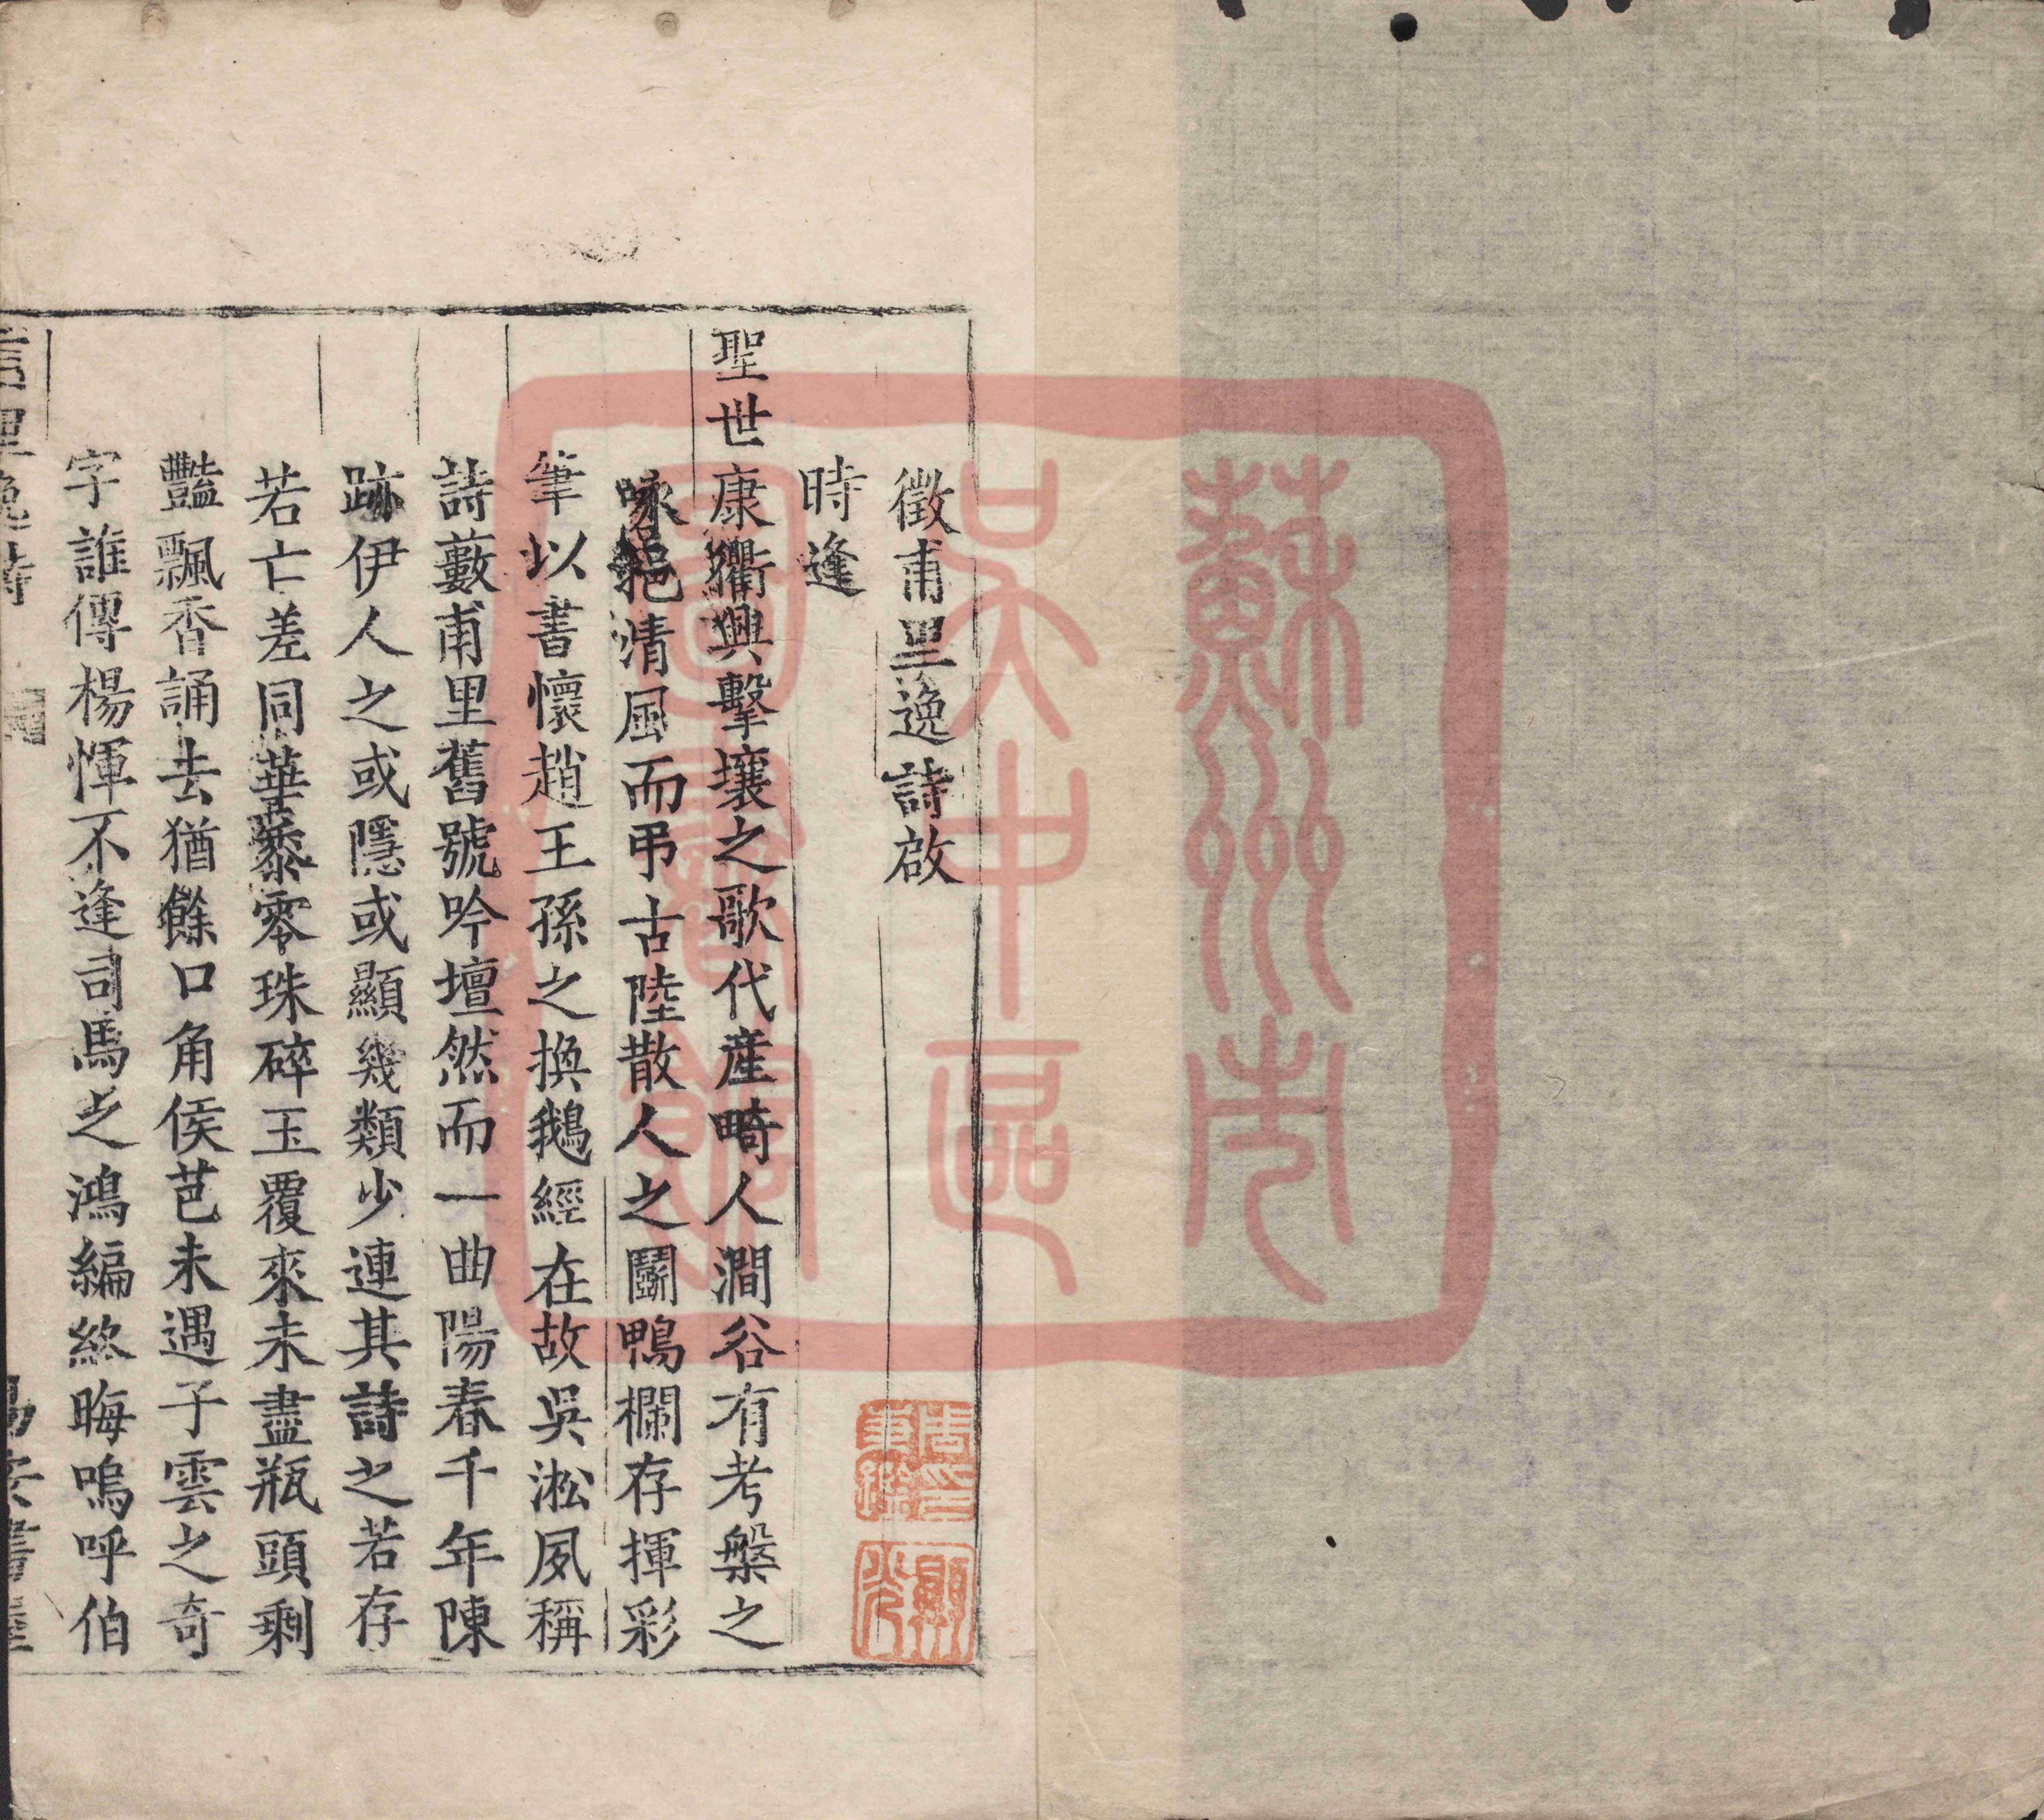 徵甫里逸詩啟
時逢
聖世康衢興擊壤之歌代產畸人澗谷有考槃之
咏挹清風而弔古陸散人之鬭鴨欄存揮彩
筆以書懷趙王孫之換鵝經在故吳淞夙稱
詩藪甫里舊號吟壇然而一曲陽春千年陳
跡伊人之或隱或顯幾類少連其詩之若存
若亡差同華黍零珠碎玉覆來未盡瓶頭剩
豔飄香誦去猶餘口角侯芭未遇子雲之奇
字誰傳楊惲不逢司馬之鴻編終晦嗚呼伯
里逸詩
易安書屋
蘇州市
吳中區
圖書館
顯